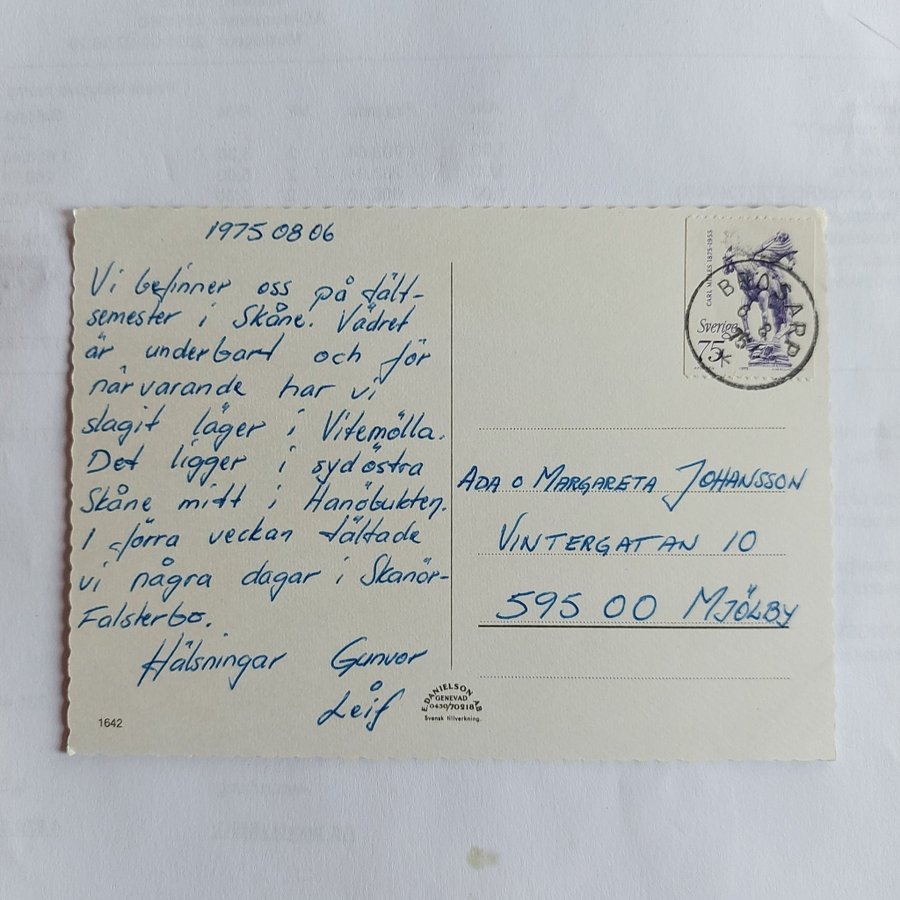 1975 08 06
Vi befinner oss på tält-
semester i Skåne. Vädret
är underbart och för
närvarande har vi
slagit läger i Vitemölla.
Det ligger i sydöstra
Skåne mitt i Hanöbukten.
I förra veckan tältade
vi några dagar i Skanör-
Falsterbo.
Hälsningar Gunvor
o
Leif
1642
E. DANIELSON AB
GENEVAD
0430/70218
Svensk tillverkning.
CARL MILLES 1875-1955
Sverige
75
BRÖSARP
6 8
75
ADA o MARGARETA JOHANSSON
VINTERGATAN 10
595 00 MJÖLBY